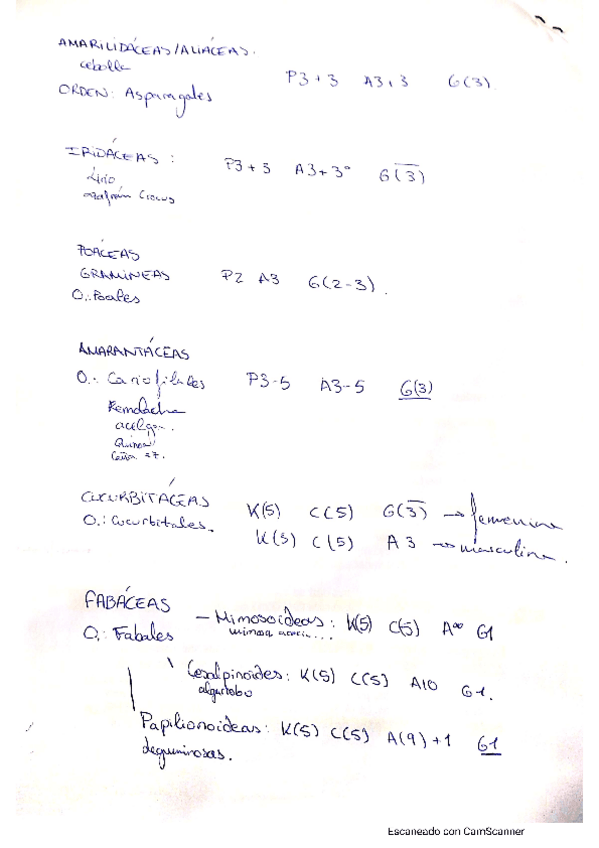 AMARILIDÁCEAS/ALIÁCEAS.
cebolla
P3+3 A3+3 G(3)
ORDEN: Asparagales
IRIDÁCEAS:
P3+3 A3+3° G(3̅)
Lirio
azafrán Crocus
POÁCEAS
GRAMÍNEAS P2 A3 G(2-3).
O.: Poales
AMARANTÁCEAS
O.: Cariofilales P3-5 A3-5 G(3)
Remolacha
acelga...
Quinoa
CUCURBITÁCEAS K(5) C(5) G(3̅) → femenina
O.: Cucurbitales. K(5) C(5) A3 → masculina.
FABÁCEAS
O.: Fabales
- Mimosoideas: K(5) C(5) A∞ G1
mimosa acacia...
Cesalpinoides: K(5) C(5) A10 G1.
algarrobo
Papilionoideas: K(5) C(5) A(9)+1 G1
leguminosas.
Escaneado con CamScanner